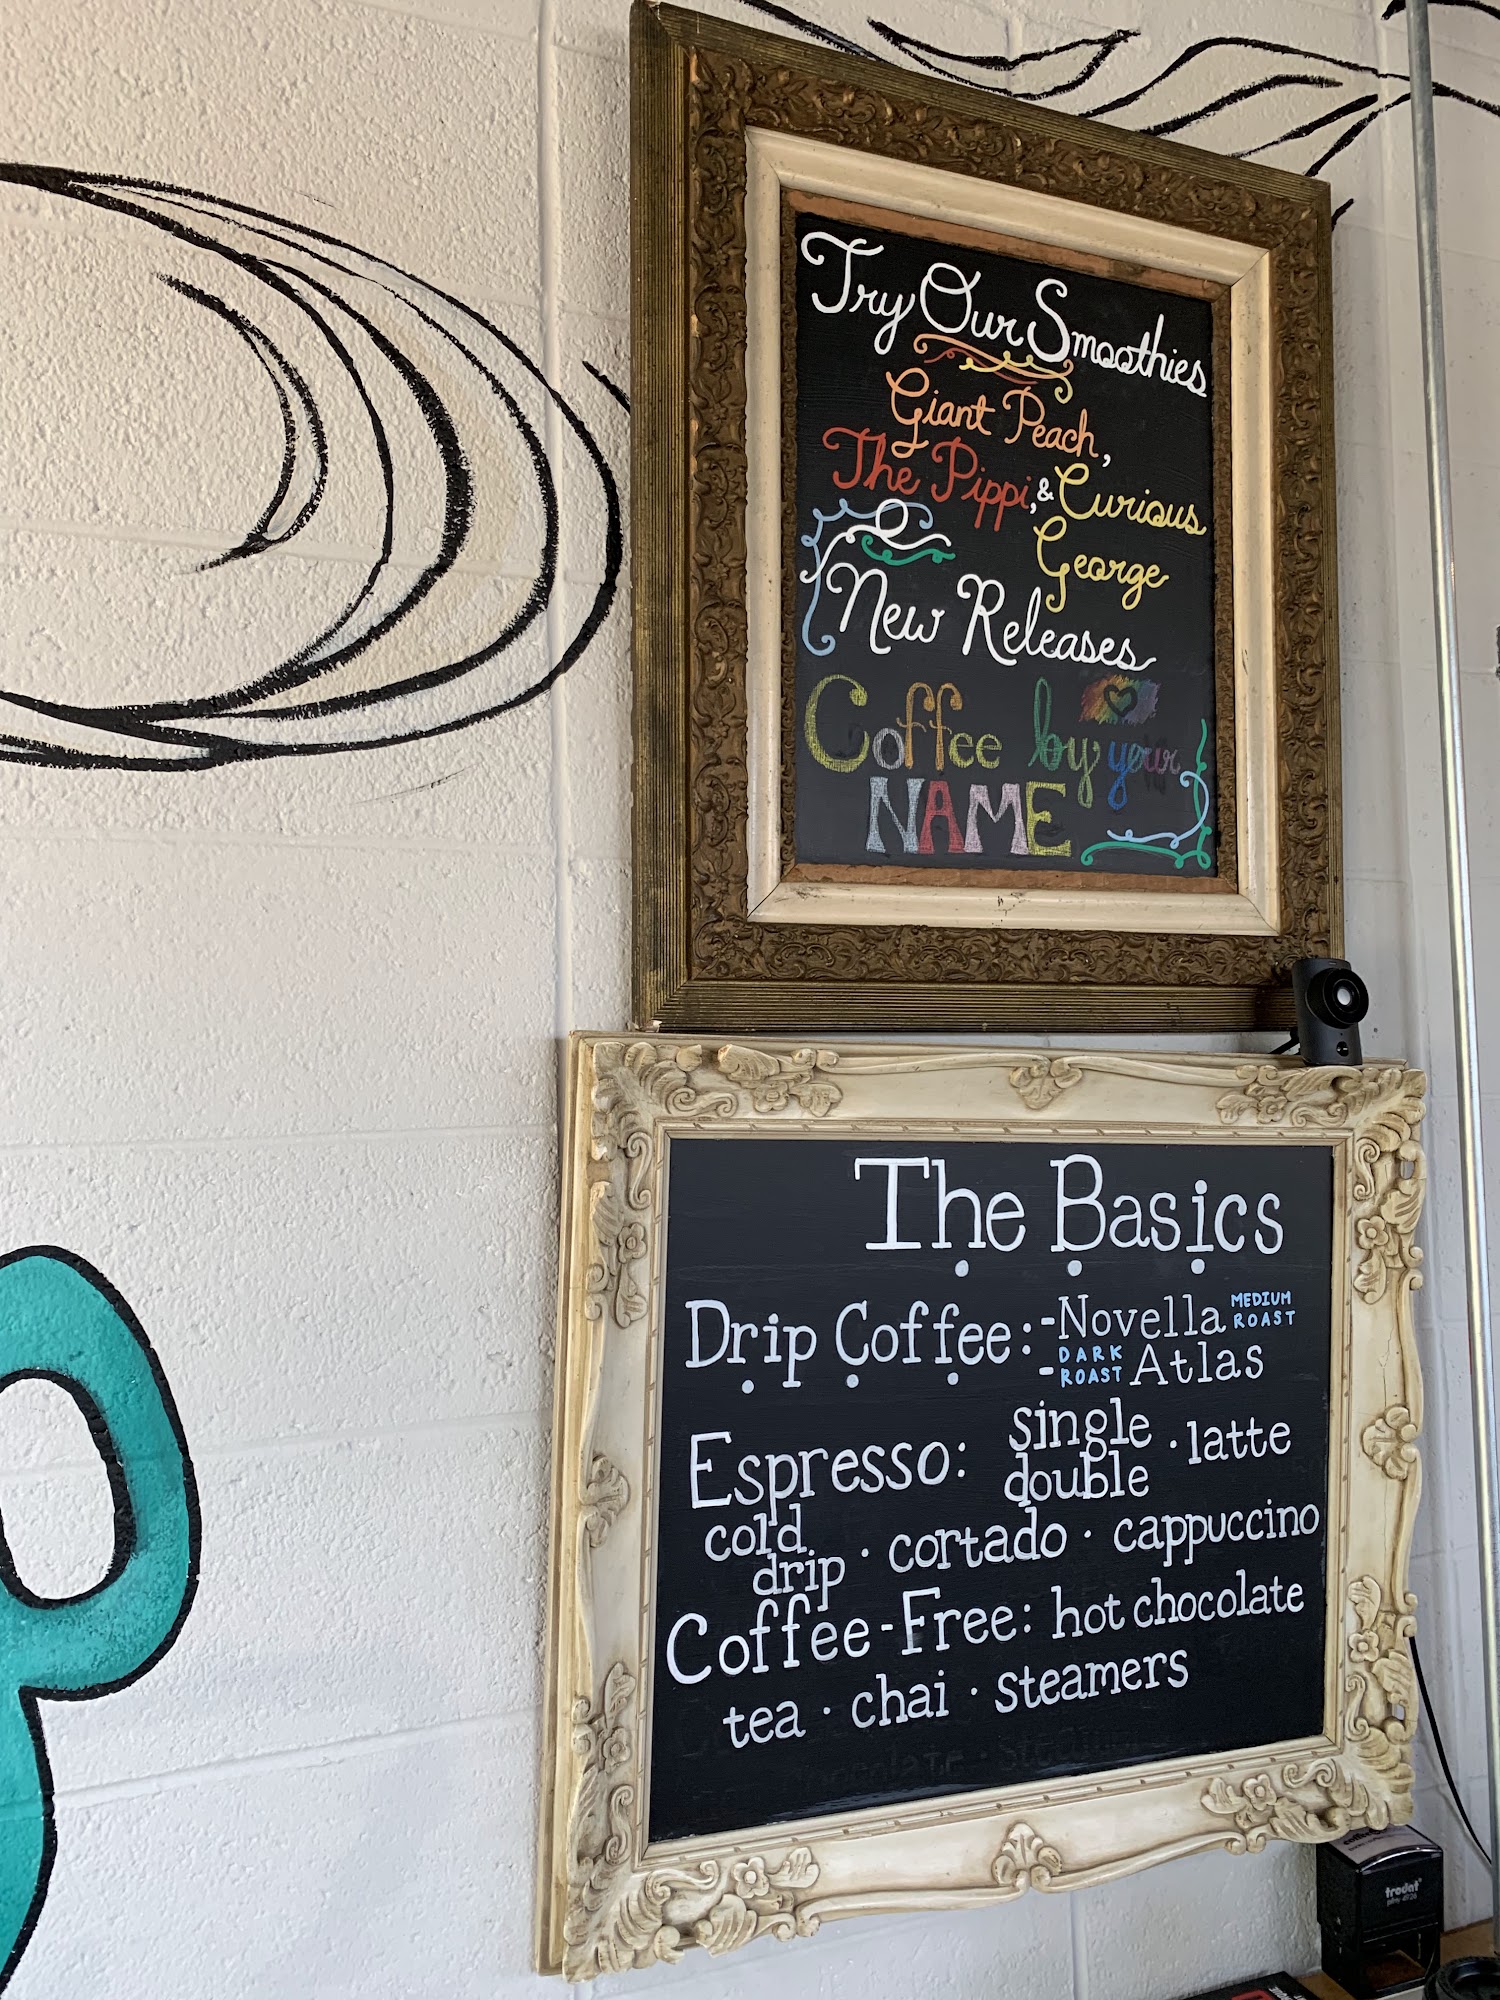 Try Our Smoothies
Giant Peach,
The Pippi, & Curious
George
New Releases
Coffee by your
NAME
The Basics
Drip Coffee: - Novella MEDIUM ROAST
- DARK ROAST Atlas
Espresso: single double · latte
cold drip · cortado · cappuccino
Coffee-Free: hot chocolate
tea · chai · steamers
trodat